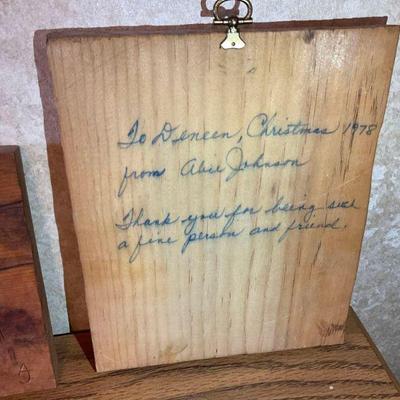 To Deneen, Christmas 1978
from Abie Johnson
Thank you for being such
a fine person and friend.